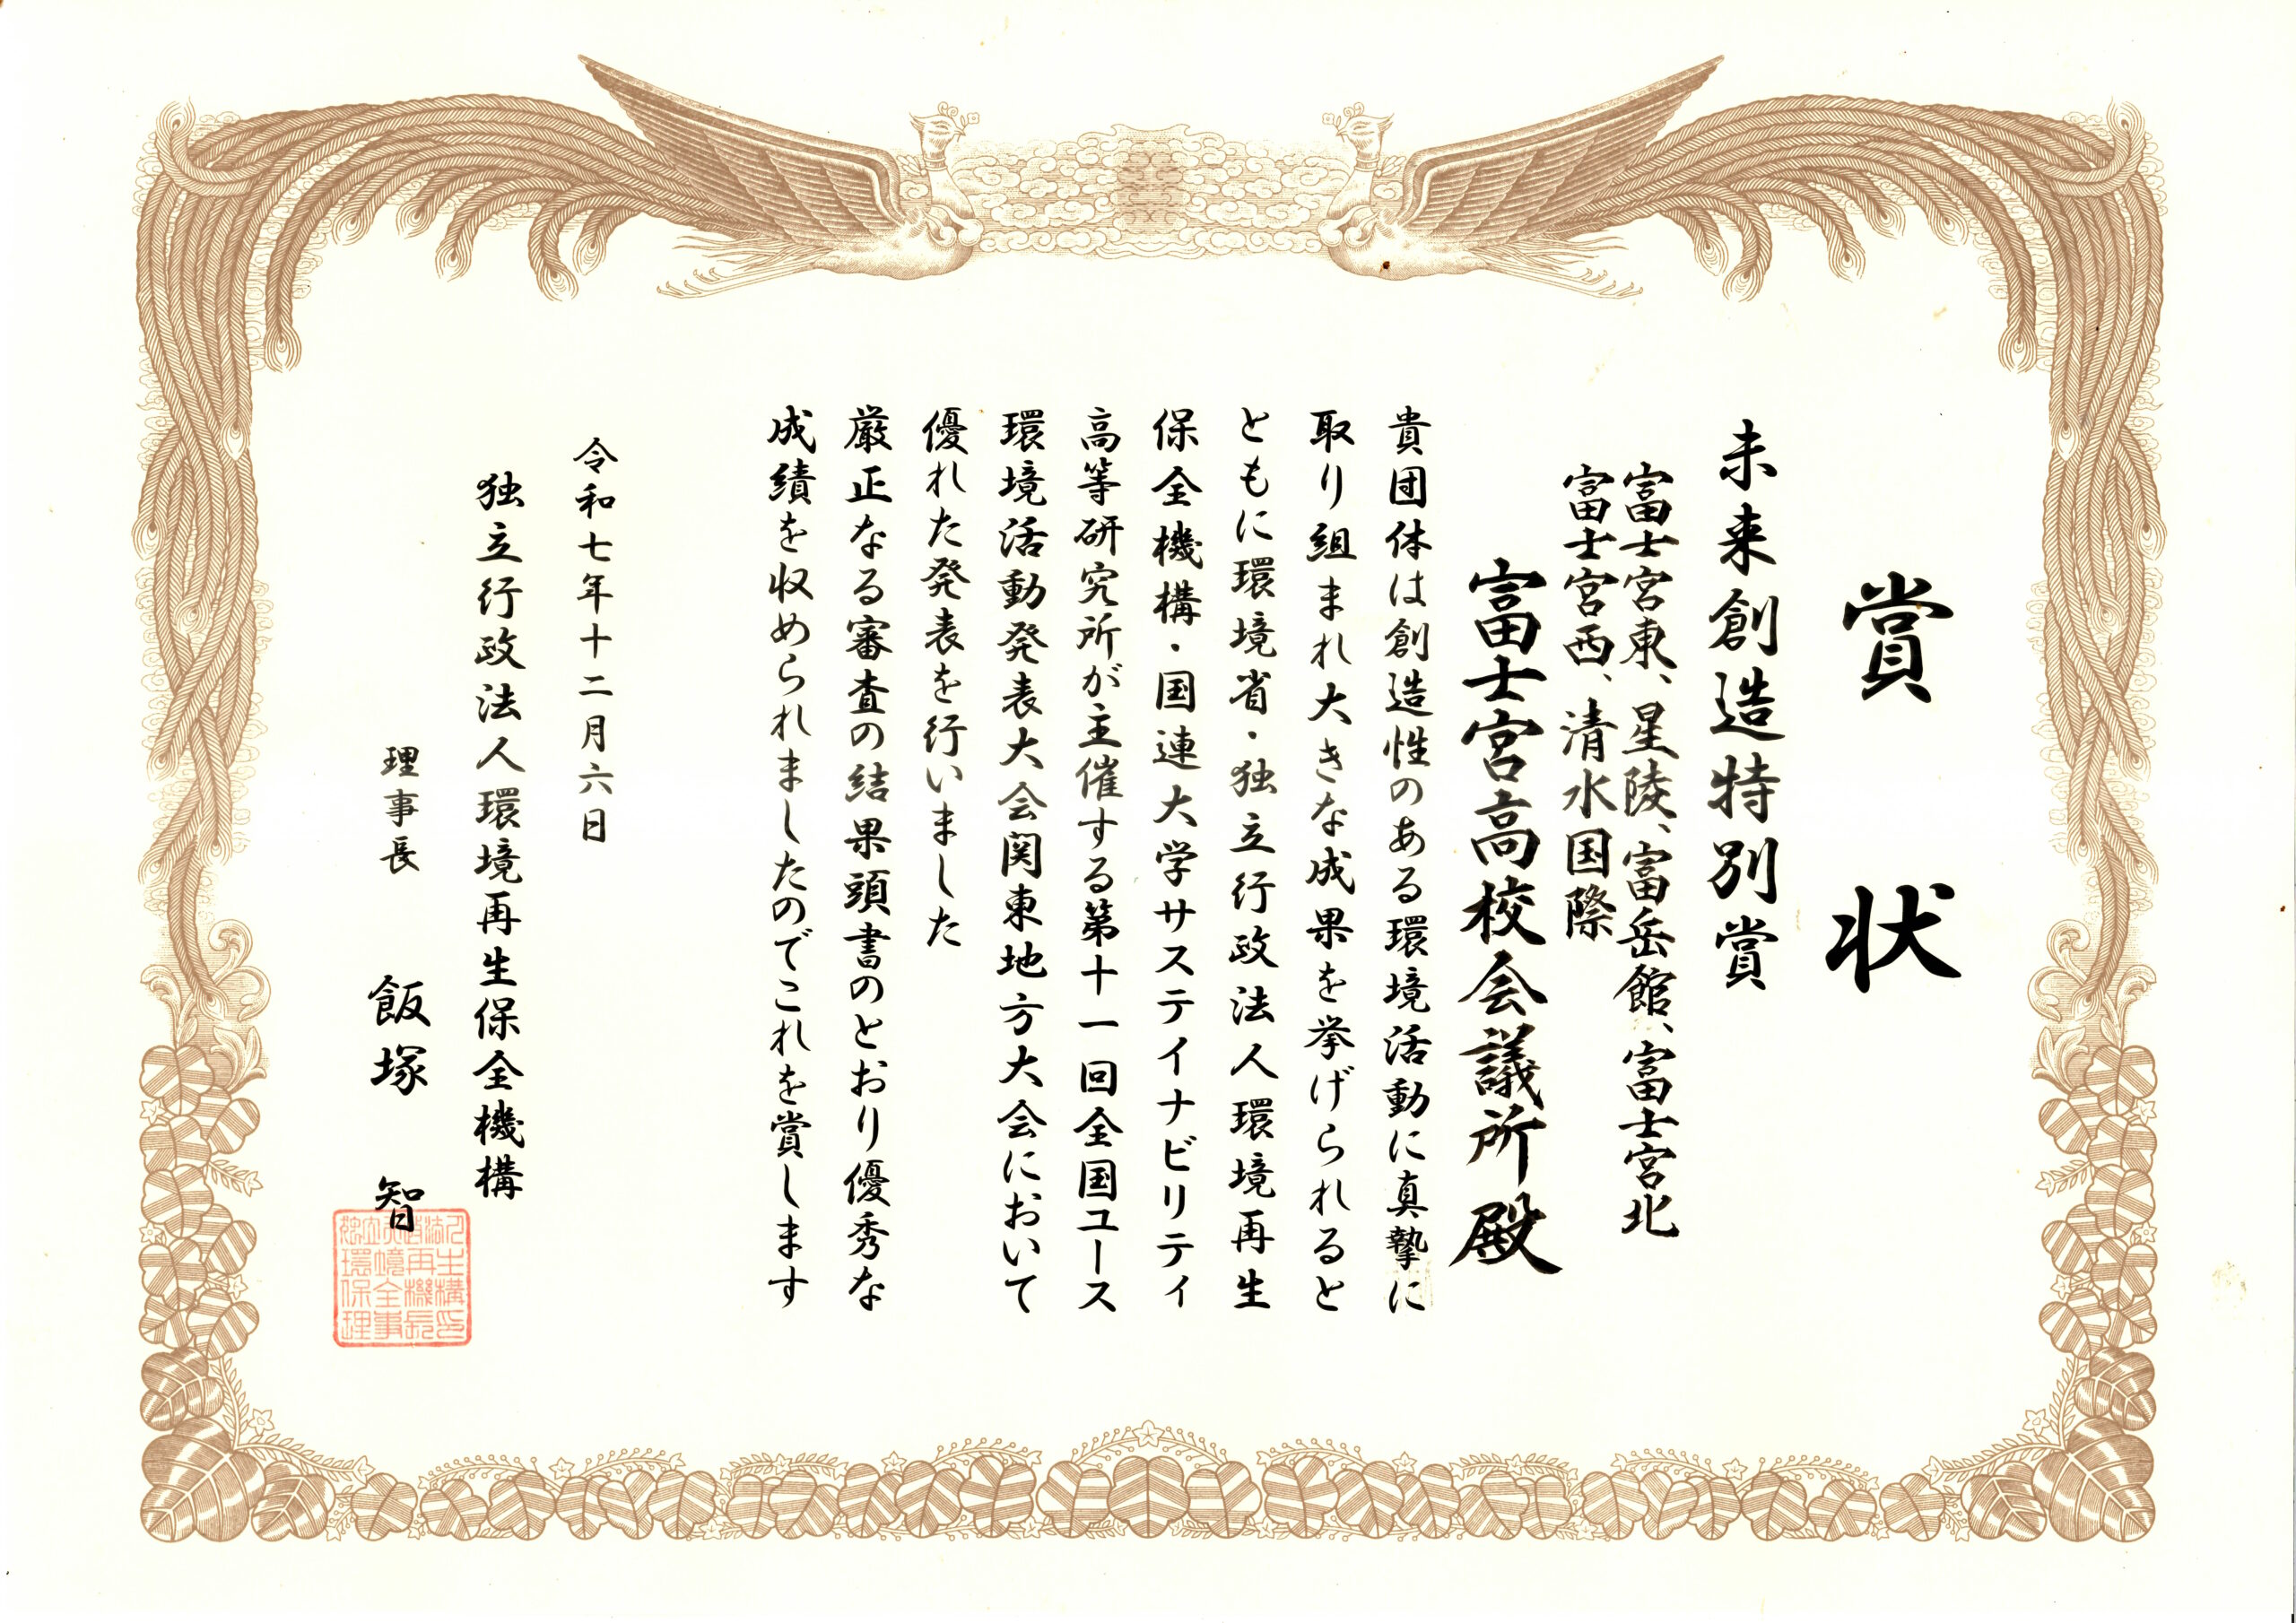 賞状
未来創造特別賞
富士宮東、星陵、富岳館、富士宮北
富士宮西、清水国際
富士宮高校会議所殿
貴団体は創造性のある環境活動に真摯に
取り組まれ大きな成果を挙げられると
ともに環境省・独立行政法人環境再生
保全機構・国連大学サステイナビリティ
高等研究所が主催する第十一回全国ユース
環境活動発表大会関東地方大会において
優れた発表を行いました
厳正なる審査の結果頭書のとおり優秀な
成績を収められましたのでこれを賞します
令和七年十二月六日
独立行政法人環境再生保全機構
理事長 飯塚 智